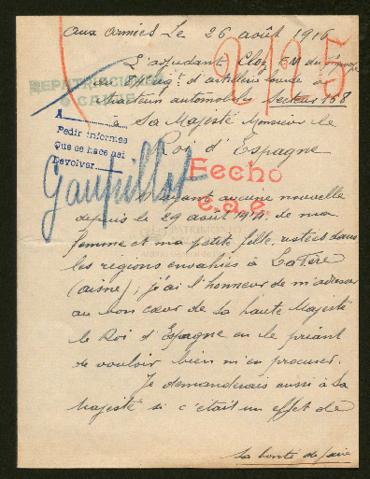 aux armées Le 26 août 1916
2125
L'adjudant
REPATRIACIONES
O CANJE
d'artillerie lourde à
tracteurs automobiles Secteur 168
A
à Sa Majesté Monsieur le
Pedir informes
Que se hace así
Devolver
Roi d'Espagne
Gaupillat
Hecho
c.a.e.
N'ayant aucune nouvelle
depuis le 29 août 1914, de ma
femme et ma petite fille, restées dans
les régions envahies à La Fère
(aisne), j'ai l'honneur de m'adresser
au bon cœur de Sa haute Majesté
le Roi d'Espagne en le priant
de vouloir bien m'en procurer.
Je demanderais aussi à Sa
Majesté si c'était un effet de
sa bonté de faire